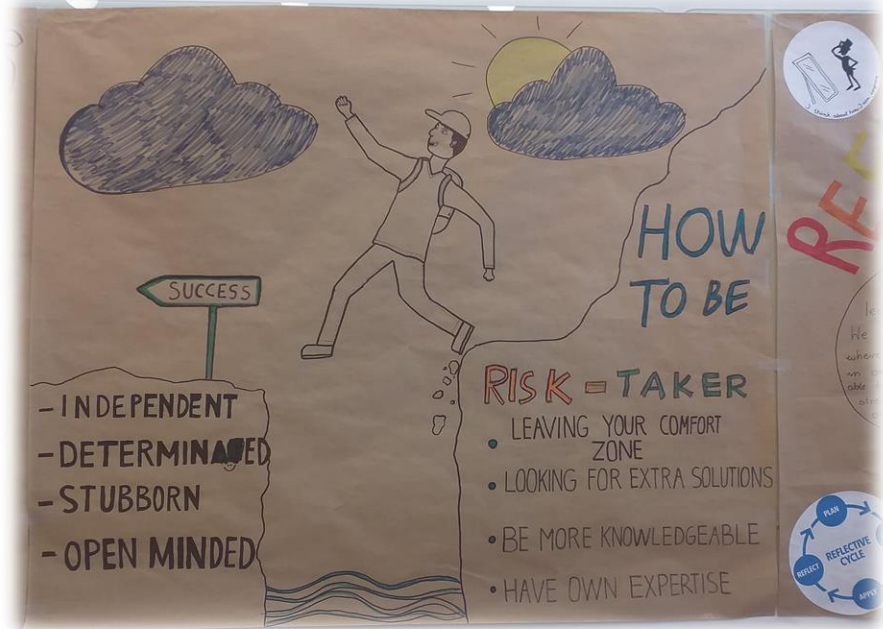 SUCCESS
- INDEPENDENT
- DETERMINED
- STUBBORN
- OPEN MINDED
HOW
TO BE
RISK = TAKER
• LEAVING YOUR COMFORT
ZONE
• LOOKING FOR EXTRA SOLUTIONS
• BE MORE KNOWLEDGEABLE
• HAVE OWN EXPERTISE
PLAN
REFLECTIVE
CYCLE
REFLECT
APPLY